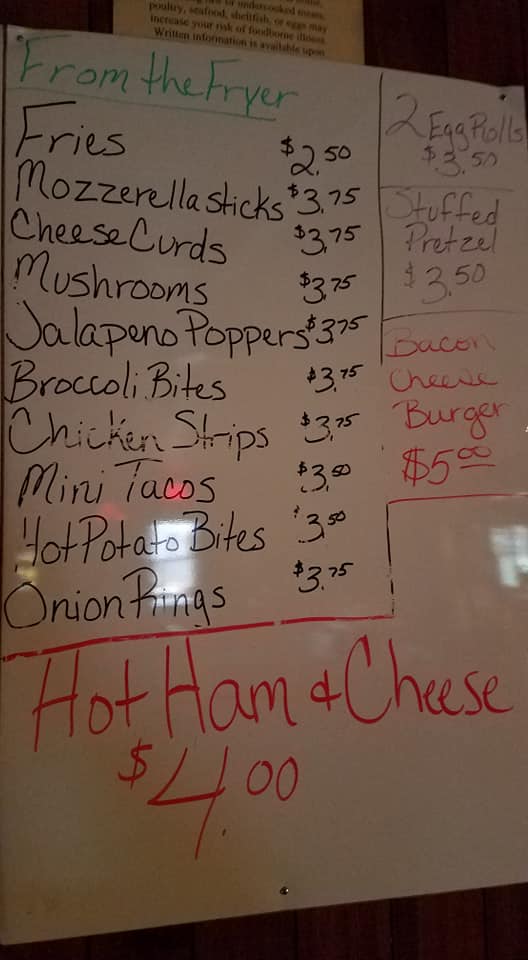 poultry, seafood, shellfish, or eggs may
increase your risk of foodborne illness.
Written information is available upon
From the Fryer
Fries $2.50
Mozzerella sticks $3.75
Cheese Curds $3.75
Mushrooms $3.75
Jalapeno Poppers $3.75
Broccoli Bites $3.75
Chicken Strips $3.75
Mini Tacos $3.50
Hot Potato Bites $3.50
Onion Rings $3.75
2 Egg Rolls
$3.50
Stuffed
Pretzel
$3.50
Bacon
Cheese
Burger
$5.00
Hot Ham & Cheese
$4.00